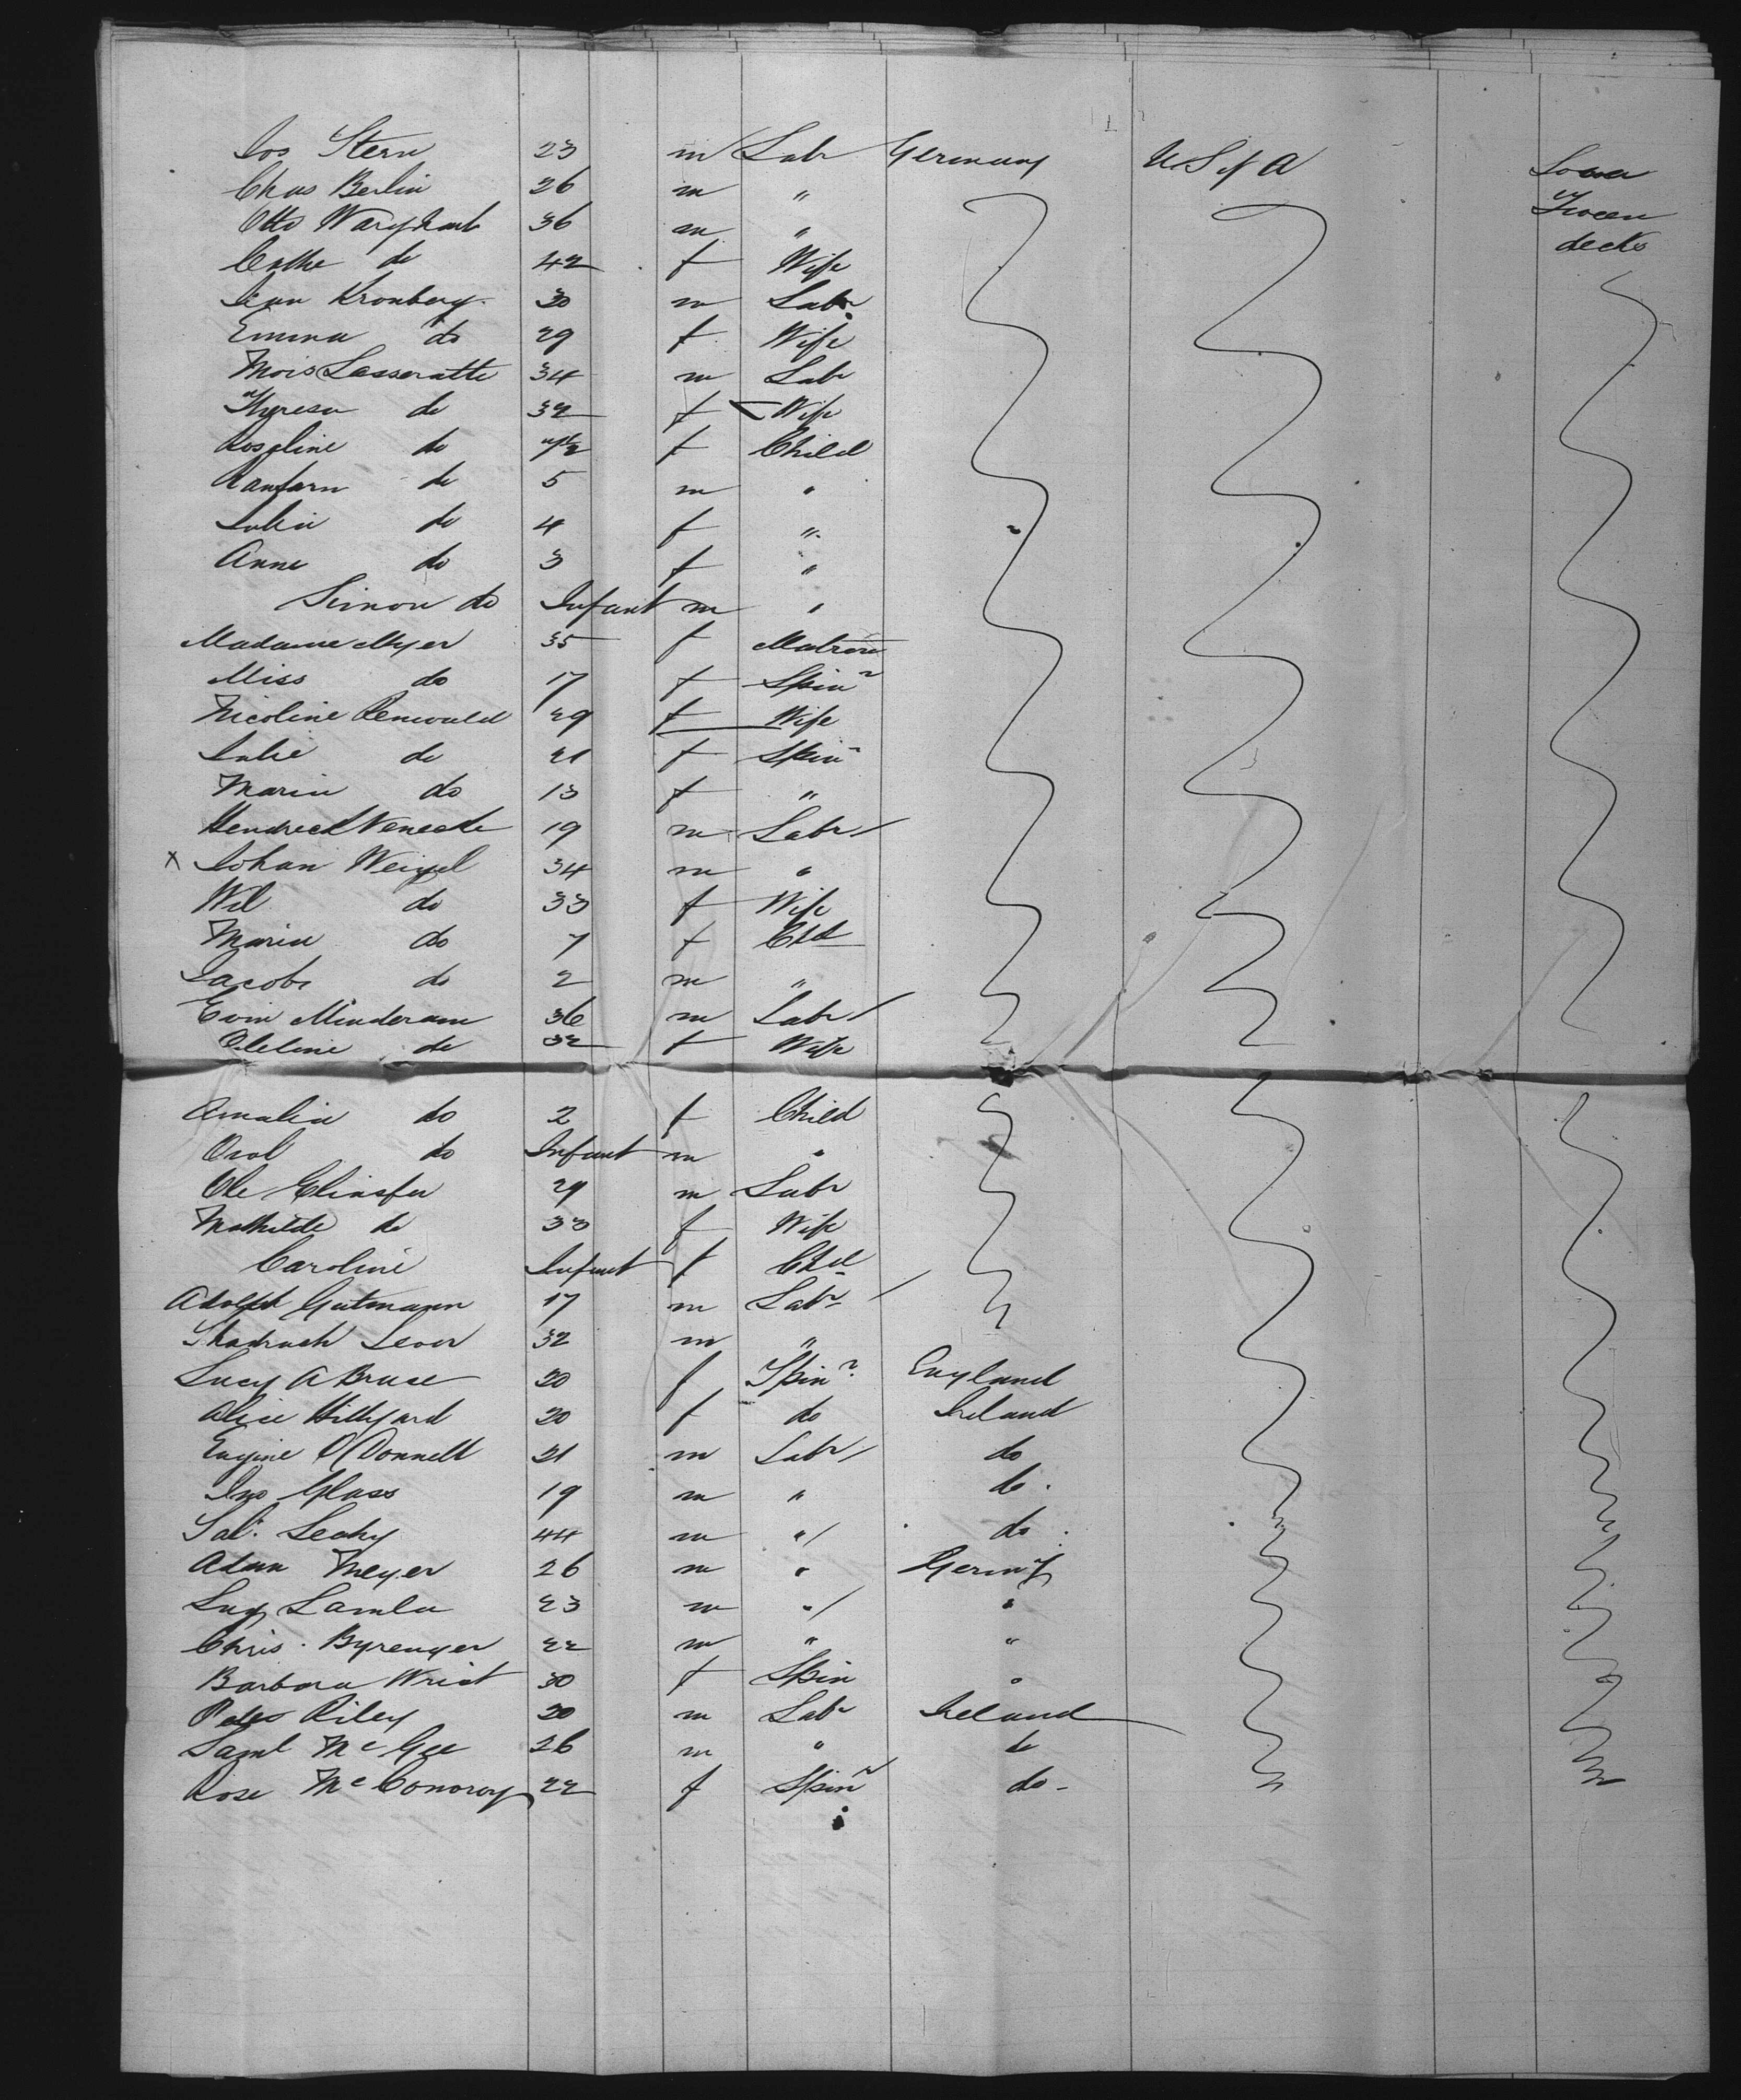 Jos Stern 23 m Labr Germany U S of A Lower
Chas Berlin 26 m " Tween
Otto 36 m " decks
Cathe do 42 f Wife
Jean Kronberg 30 m Labr
Emma do 29 f Wife
Mois Lasseratte 34 m Labr
Theresa do 32 f Wife
Rosaline do f Child
do 5 m "
Julia do 4 f "
Anna do 3 f "
Simon do Infant m "
Madame Meyer 35 f Matron
Miss do 17 f Spinr
Nicoline Renwald 29 f Wife
Julie do 21 f Spinr
Maria do 13 f "
Hendreck 19 m Labr
x Johan Weigel 34 m "
Wil do 33 f Wife
Maria do 7 f Chd
Jacob do 2 m "
Evin Minderam 36 m Labr
Oleline do 32 f Wife
Amalia do 2 f Child
do Infant m "
Ole 29 m Labr
Mathilde do 33 f Wife
Caroline Infant f Chd
Adolph Gutmann 17 m Labr
Shadrach Lever 32 m "
Lucy A Bruce 20 f Spinr England
Alice Hillyard 20 f do Ireland
Eugine O'Donnell 21 m Labr do
Jno Glass 19 m " do
Leahy 44 m " do
Adam Meyer 26 m " Germy
23 m " "
Chris. Byrenger 22 m " "
Barbara Wrist 30 f Spin "
Peter Riley 20 m Labr Ireland
Saml McGee 26 m " do
Rose McConoroy 22 f Spinr do